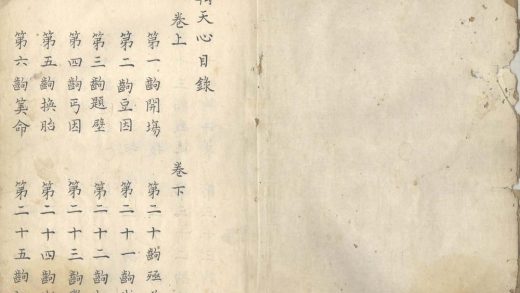 天心目錄
卷上
第一齣開場
第二齣豆因
第三齣題壁
第四齣丐因
第五齣換胎
第六齣筭命
卷下
第二十齣殛
第二十一齣
第二十二齣
第二十三齣
第二十四齣
第二十五齣